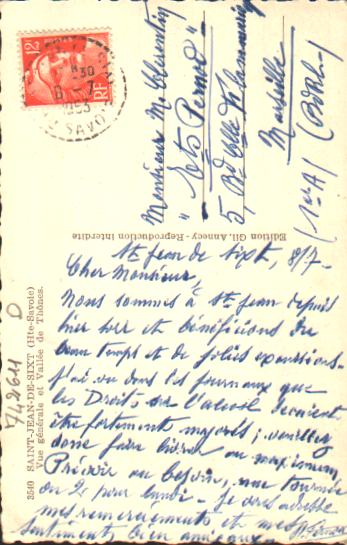 12F
RF
8-7
1953
SAVOIE
Monsieur M. Clementin
"Ets Pernod"
5 Bd
Marseille
(1er A) (B.d.Rh.)
Edition Gil. Annecy - Reproduction Interdite
2549 SAINT-JEAN-DE-SIXT (Hte-Savoie)
Vue générale et la Vallée de Thônes.
742611 D
St Jean de Sixt, 8/7-
Cher Monsieur,
Nous sommes à St Jean depuis
hier soir et bénéficions du
beau temps et de jolies excursions-
J'ai vu dans les journaux que
les Droits sur l'alcool devaient
être fortement majorés; veuillez
donc faire livrer au maximum
Prévoir au besoin, une tournée
ou 2 pour lundi - Je vous adresse
mes remerciements et mes
sentiments bien amicaux